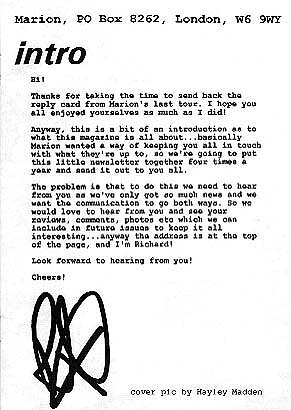 Marion, PO Box 8262, London, W6 9WY
intro
Hi!
Thanks for taking the time to send back the
reply card from Marion's last tour. I hope you
all enjoyed yourselves as much as I did!
Anyway, this is a bit of an introduction as to
what this magazine is all about...basically
Marion wanted a way of keeping you all in touch
with what they're up to, so we're going to put
this little newsletter together four times a
year and send it out to you all.
The problem is that to do this we need to hear
from you as we've only got so much news and we
want the communication to go both ways. So we
would love to hear from you and see your
reviews, comments, photos etc which we can
include in future issues to keep it all
interesting...anyway the address is at the top
of the page, and I'm Richard!
Look forward to hearing from you!
Cheers!
cover pic by Hayley Madden